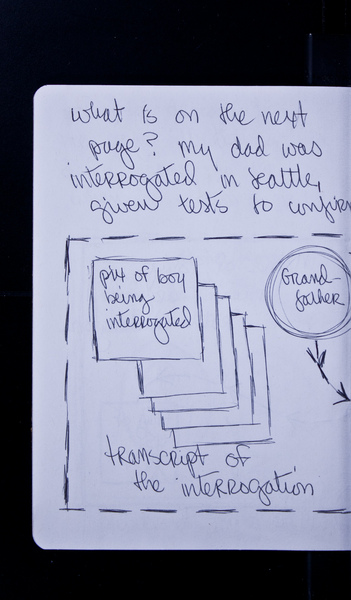 what is on the next
page? my dad was
interrogated in Seattle,
given tests to confirm
pix of boy
being
interrogated
Grand-
father
transcript of
the interrogation